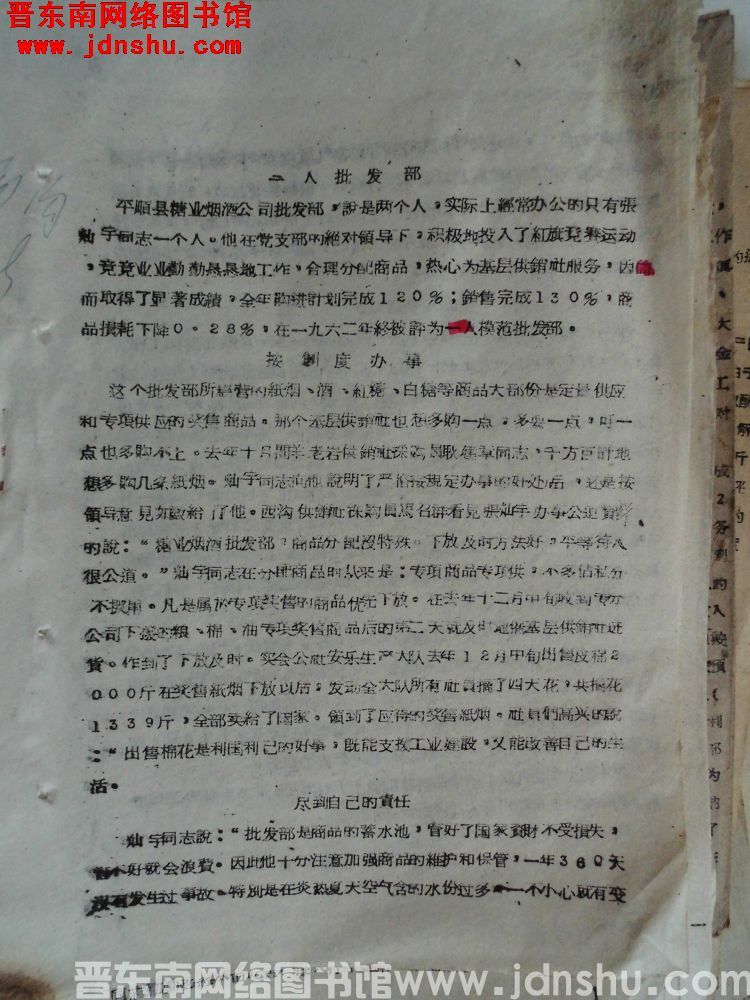 晋东南网络图书馆
www.jdnshu.com
一人批发部
平順县糖业烟酒公司批发部，說是两个人，实际上經常办公的只有張
灿宇同志一个人。他在党支部的絕对領导下，积极地投入了紅旗竞赛运动
，竞竞业业勤勤恳恳地工作，合理分配商品，热心为基层供銷社服务，因
而取得了显著成績，全年购进計划完成120%；銷售完成130%，商
品損耗下降0.28%，在一九六二年終被評为一人模范批发部。
按制度办事
这个批发部所經营的紙烟、酒、紅糖、白糖等商品大部份是定量供应
和专項供应的奖售商品。那个基层供銷社也想多购一点，多要一点，可一
点也多购不上。去年十月間羊老岩供銷社采购員耿 同志，千方百計地
想多购几条紙烟。灿宇同志向他說明了严格按規定办事的好处 ，还是按
領导意見如数給了他。西沟供銷社采购員馬名群看見張灿宇办事公道
的說：“糖业烟酒批发部，商品分配沒特殊。下放及时方法好，平等待人
很公道。”灿宇同志在分配商品时从来是：专項商品专項供，不多估私分
不挪用。凡是属於专項奖售的商品优先下放。在去年十二月中旬收到专分
公司下 的粮、棉、油专項奖售商品后的第二天就及时 基层供銷社进
貨。作到了下放及时。实会公社安乐生产大队去年12月中旬出售皮棉2
000斤在奖售紙烟下放以后，发动全大队所有社員摘了四天花，共摘花
1339斤，全部卖給了国家。領到了应得的奖售紙烟。社員們高兴的說
：“出售棉花是利国利己的好事，既能支援工业建設，又能改善自己的生
活。
尽到自己的責任
灿宇同志說：“批发部是商品的蓄水池，管好了国家資財不受損失，
管不好就会浪費。因此他十分注意加强商品的維护和保管，一年360天
沒有发生过事故。特別是在炎热夏天空气含的水份过多，一不小心就有变
晋东南网络图书馆 www.jdnshu.com